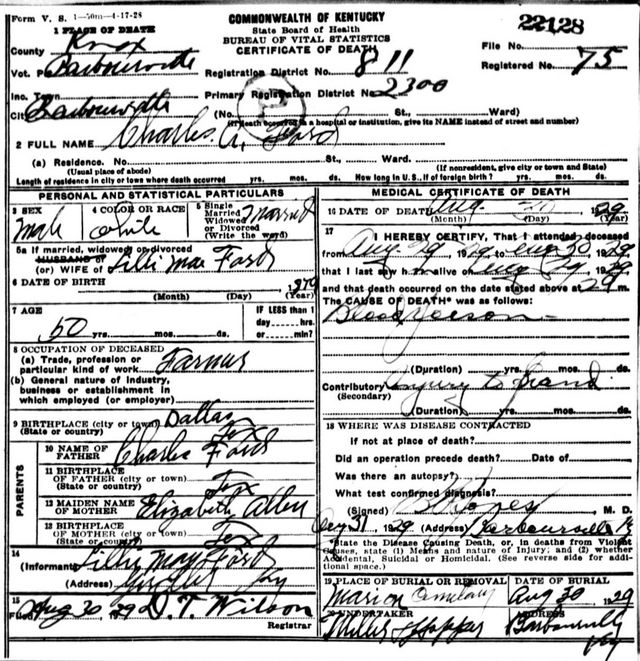 Form V. S. 1—50m—4-17-28
COMMONWEALTH OF KENTUCKY
State Board of Health
BUREAU OF VITAL STATISTICS
CERTIFICATE OF DEATH
22128
File No.
Registered No. 75
1 PLACE OF DEATH
County Knox
Vot. P Barbourville
Registration District No. 811
Inc. Town
Primary Registration District No. 2300
City Barbourville
(No. St., Ward)
(If death occurred in a hospital or institution, give its NAME instead of street and number)
2 FULL NAME Charles A. Ford
(a) Residence. No. St., Ward.
(Usual place of abode) (If nonresident, give city or town and State)
Length of residence in city or town where death occurred yrs. mos. ds. How long in U. S., if of foreign birth? yrs. mos. ds.
PERSONAL AND STATISTICAL PARTICULARS
3 SEX Male
4 COLOR OR RACE White
5 Single Married Widowed or Divorced (Write the word) Married
5a If married, widowed or divorced
HUSBAND of
(or) WIFE of Lilli Mae Ford
6 DATE OF BIRTH 1879
(Month) (Day) (Year)
7 AGE
50 yrs. mos. ds.
IF LESS than 1
day hrs.
or min.?
8 OCCUPATION OF DECEASED
(a) Trade, profession or
particular kind of work Farmer
(b) General nature of Industry,
business or establishment in
which employed (or employer)
9 BIRTHPLACE (city or town) Dallas
(State or country) Tex
PARENTS
10 NAME OF
FATHER Charles Ford
11 BIRTHPLACE
OF FATHER (city or town) Tex
(State or country)
12 MAIDEN NAME
OF MOTHER Elizabeth Allen
13 BIRTHPLACE
OF MOTHER (city or town) Tex
(State or country)
14
(Informant) Lillie May Ford
(Address) Ky
15
Filed Aug 30, 1929 D. T. Wilson
Registrar
MEDICAL CERTIFICATE OF DEATH
16 DATE OF DEATH Aug 30 1929
(Month) (Day) (Year)
17
I HEREBY CERTIFY, That I attended deceased
from Aug 29, 1929, to Aug 30 1929
that I last saw h m alive on Aug 1929
and that death occurred on the date stated above at m.
The CAUSE OF DEATH* was as follows:
Blood Poison
(Duration) yrs. mos. ds.
Contributory Injury to hand
(Secondary)
(Duration) yrs. mos. ds.
18 WHERE WAS DISEASE CONTRACTED
If not at place of death?
Did an operation precede death? Date of
Was there an autopsy?
What test confirmed diagnosis?
(Signed) Jones M. D.
31 1929 (Address) Barbourville Ky
*State the Disease Causing Death, or, in deaths from Violent
Causes, state (1) Means and nature of Injury; and (2) whether
Accidental, Suicidal or Homicidal. (See reverse side for addi-
tional space.)
19 PLACE OF BURIAL OR REMOVAL
Marion Cemetary
DATE OF BURIAL
Aug 30 1929
20 UNDERTAKER
Miller Hopper
ADDRESS
Barbourville
Ky